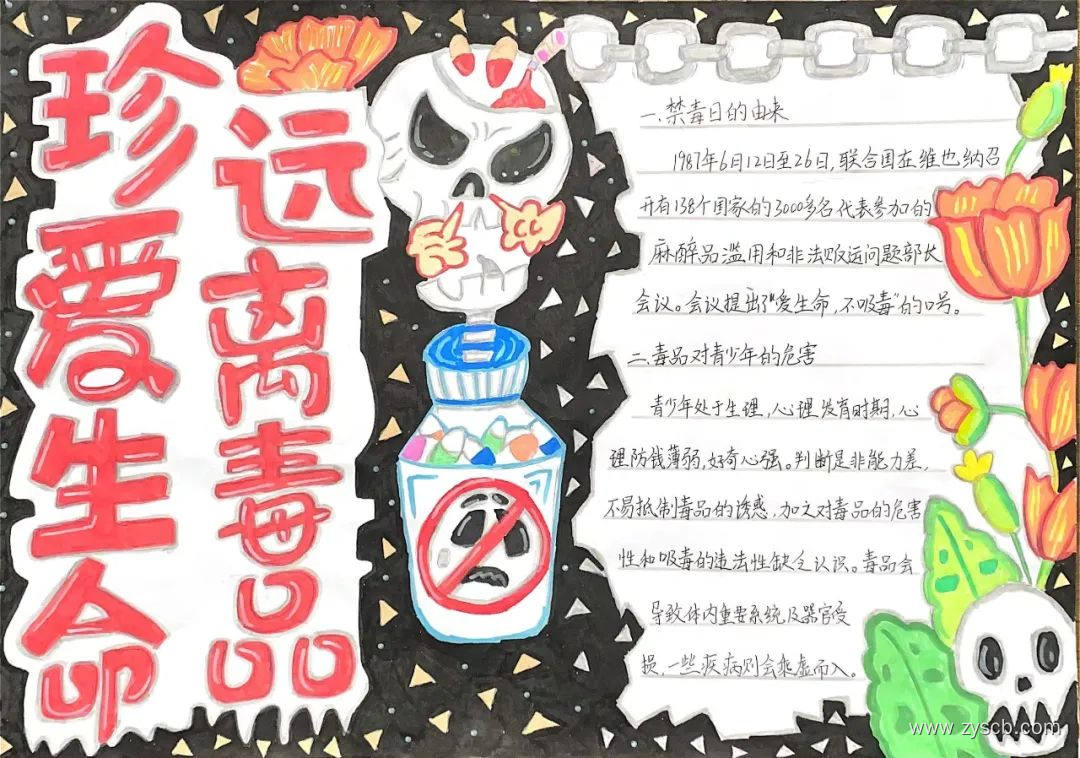 珍爱生命
远离毒品
一.禁毒日的由来
1987年6月12日至26日,联合国在维也纳召
开有138个国家的3000多名代表参加的
麻醉品滥用和非法贩运问题部长
会议。会议提出了"爱生命,不吸毒"的口号。
二.毒品对青少年的危害
青少年处于生理,心理发育时期,心
理防线薄弱,好奇心强。判断是非能力差,
不易抵制毒品的诱惑,加之对毒品的危害
性和吸毒的违法性缺乏认识。毒品会
导致体内重要系统及器官受
损,一些疾病则会乘虚而入。
www.zyscb.com